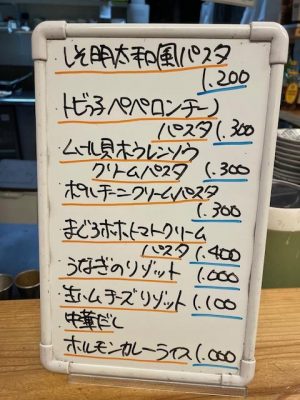 しそ明太和風パスタ
1.200
トビっ子ペペロンチーノ
パスタ 1.300
ムール貝ホウレンソウ
クリームパスタ 1.300
ポルチーニクリームパスタ
1.300
まぐろホホトマトクリーム
パスタ 1.400
うなぎのリゾット 1.000
生ハムチーズリゾット 1.100
中華だし
ホルモンカレーライス 1.000